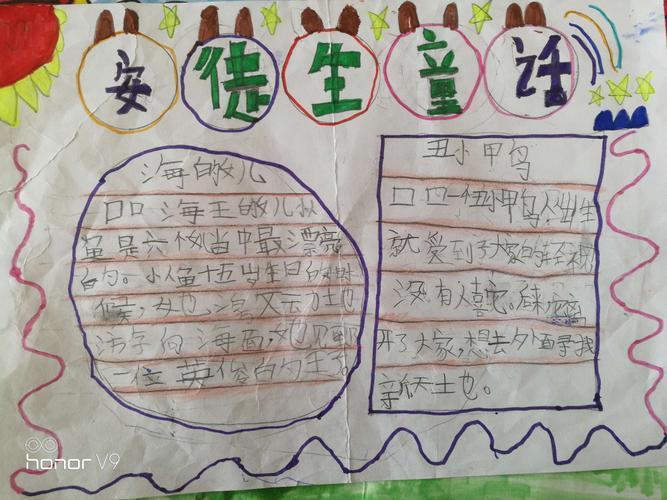 安徒生童话
海的女儿
口口海王的女儿
鱼是六个当中最漂亮
的。小鱼十五岁生日的时
候,她
海面,她见到
一位英俊的王子。
丑小鸭
口口一个小鸭
就受到了大家的轻视
没有人喜它。
开了大家,想去外面寻找
新天土也。
honor V9